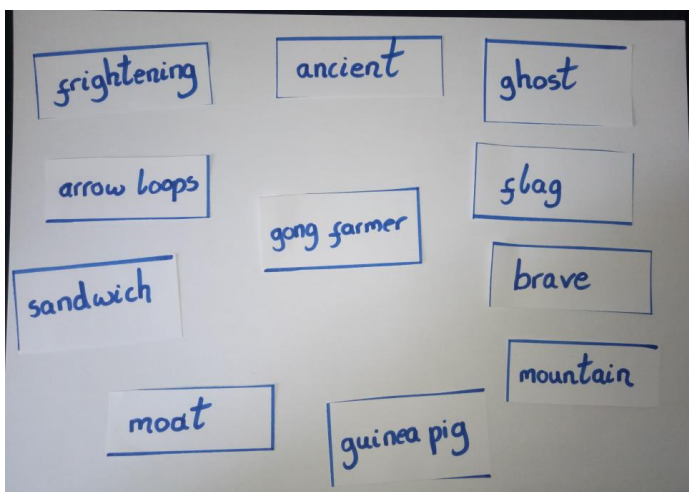 frightening
ancient
ghost
arrow loops
flag
gong farmer
sandwich
brave
mountain
moat
guinea pig